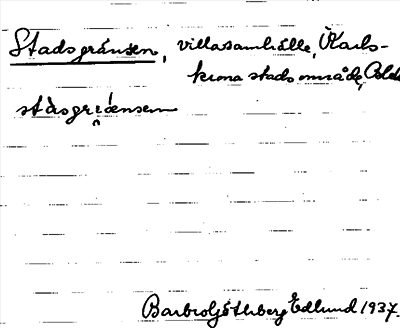 Stadsgränsen, villasamhälle, Karls-
krona stadsområde, Blek.
stàsgrǽnsen
Barbro Göthberg Edlund 1937.